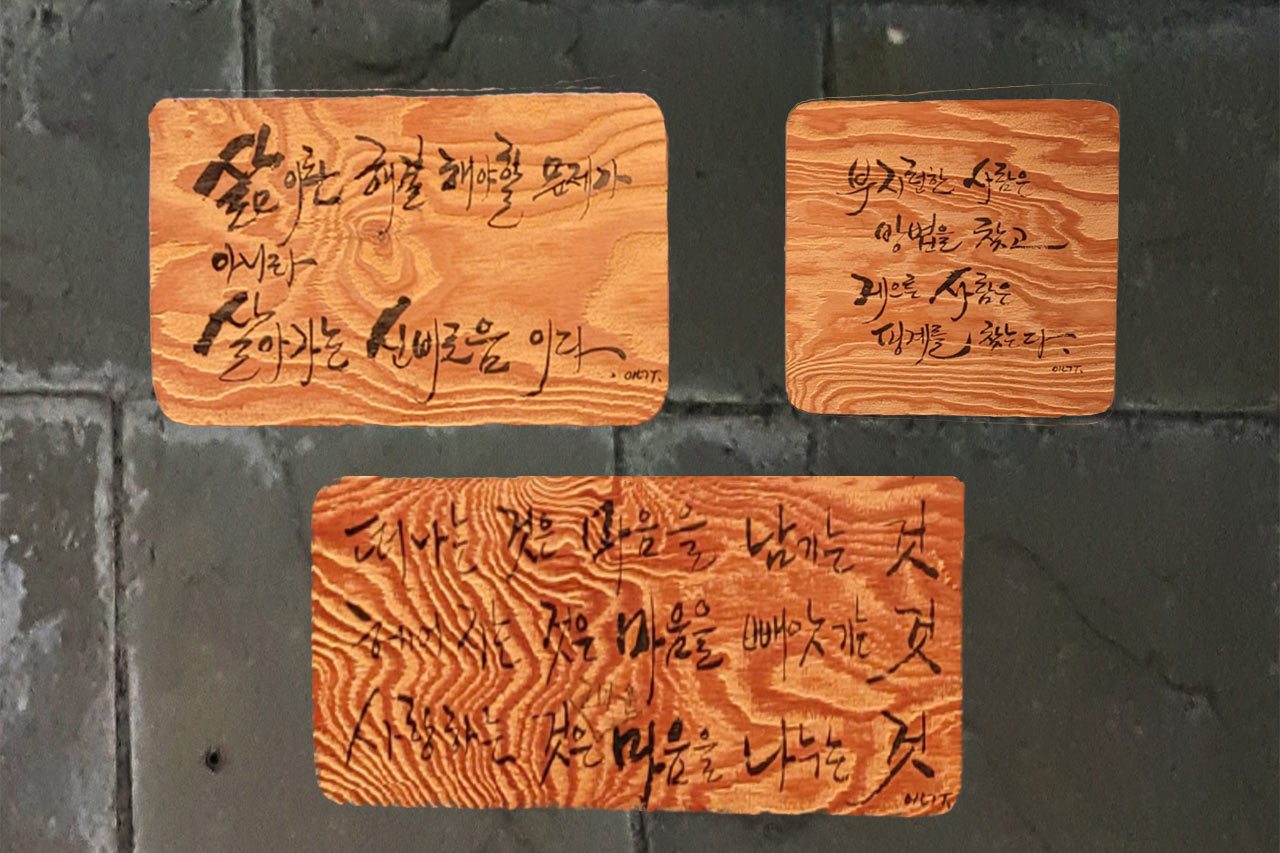 삶이란 해결해야할 문제가
아니라
살아가는 신비로움 이다.
부지런한 사람은
방법을 찾고
게으른 사람은
핑계를 찾는다.
떠나는 것은 마음을 남기는 것
헤어지는 것은 마음을 빼앗기는 것
사랑하는 것은 마음을 나누는 것